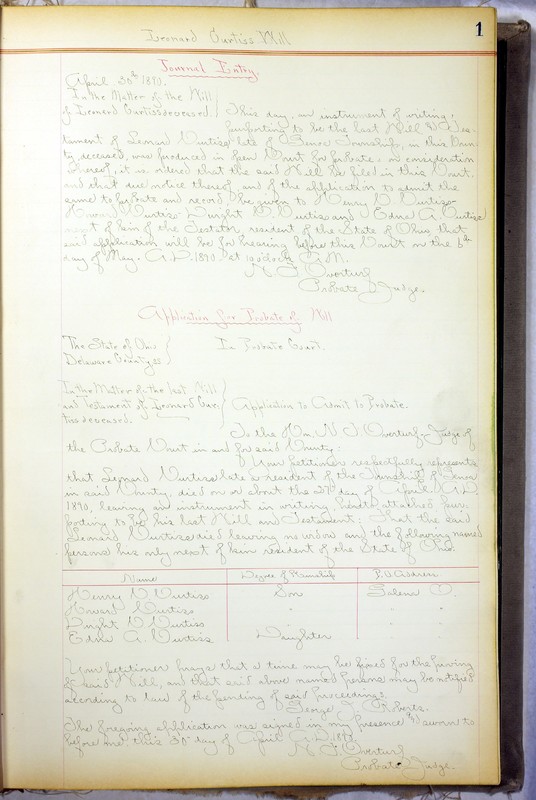 1
Leonard Curtiss Will
Journal Entry.
April 30th 1890.
In the Matter of the Will
of Leonard Curtiss deceased
This day, an instrument of writing,
purporting to be the last Will & Tes-
tament of Leonard Curtiss late of Township, in this Coun-
ty deceased, was produced in open Court for probate: on consideration
thereof, it is ordered that the said Will be filed in this Court,
and that due notice thereof, and of the application to admit the
same to probate and record, be given to Henry V Curtiss
Howard Curtiss Dwight Curtiss and Edna A. Curtiss
next of kin of the Testator, resident of the State of Ohio, that
said application will be for hearing before this Court on the 6th
day of May. A.D. 1890 at 10 o'clock A.M.
N. J. Overturf
Probate Judge.
Application for Probate of Will
The State of Ohio
Delaware County ss
In Probate Court.
In the Matter of the last Will
and Testament of Leonard Cur-
tiss deceased.
Application to Admit to Probate.
To the Hon. N. J. Overturf, Judge of
the Probate Court in and for said County:
Your petitioner respectfully represents
that Leonard Curtiss late a resident of the Township of
in said County, died on or about the 27th day of April A.D.
1890, leaving an instrument in writing, herewith attached, pur-
porting to be his last Will and Testament; That the said
Leonard Curtiss died leaving no widow and the following named
persons his only next of kin resident of the State of Ohio:
Name Degree of Kinship P.O. Address
Henry V Curtiss Son Galena O.
Howard Curtiss " " "
Dwight Curtiss " " "
Edna A. Curtiss Daughter " "
Your petitioner prays that a time may be fixed for the proving
of said Will, and that said above named persons may be notified
according to law of the pending of said proceedings.
George J. Roberts.
The foregoing application was signed in my presence & sworn to
before me this 30th day of April A.D. 1890.
N. J. Overturf
Probate Judge.